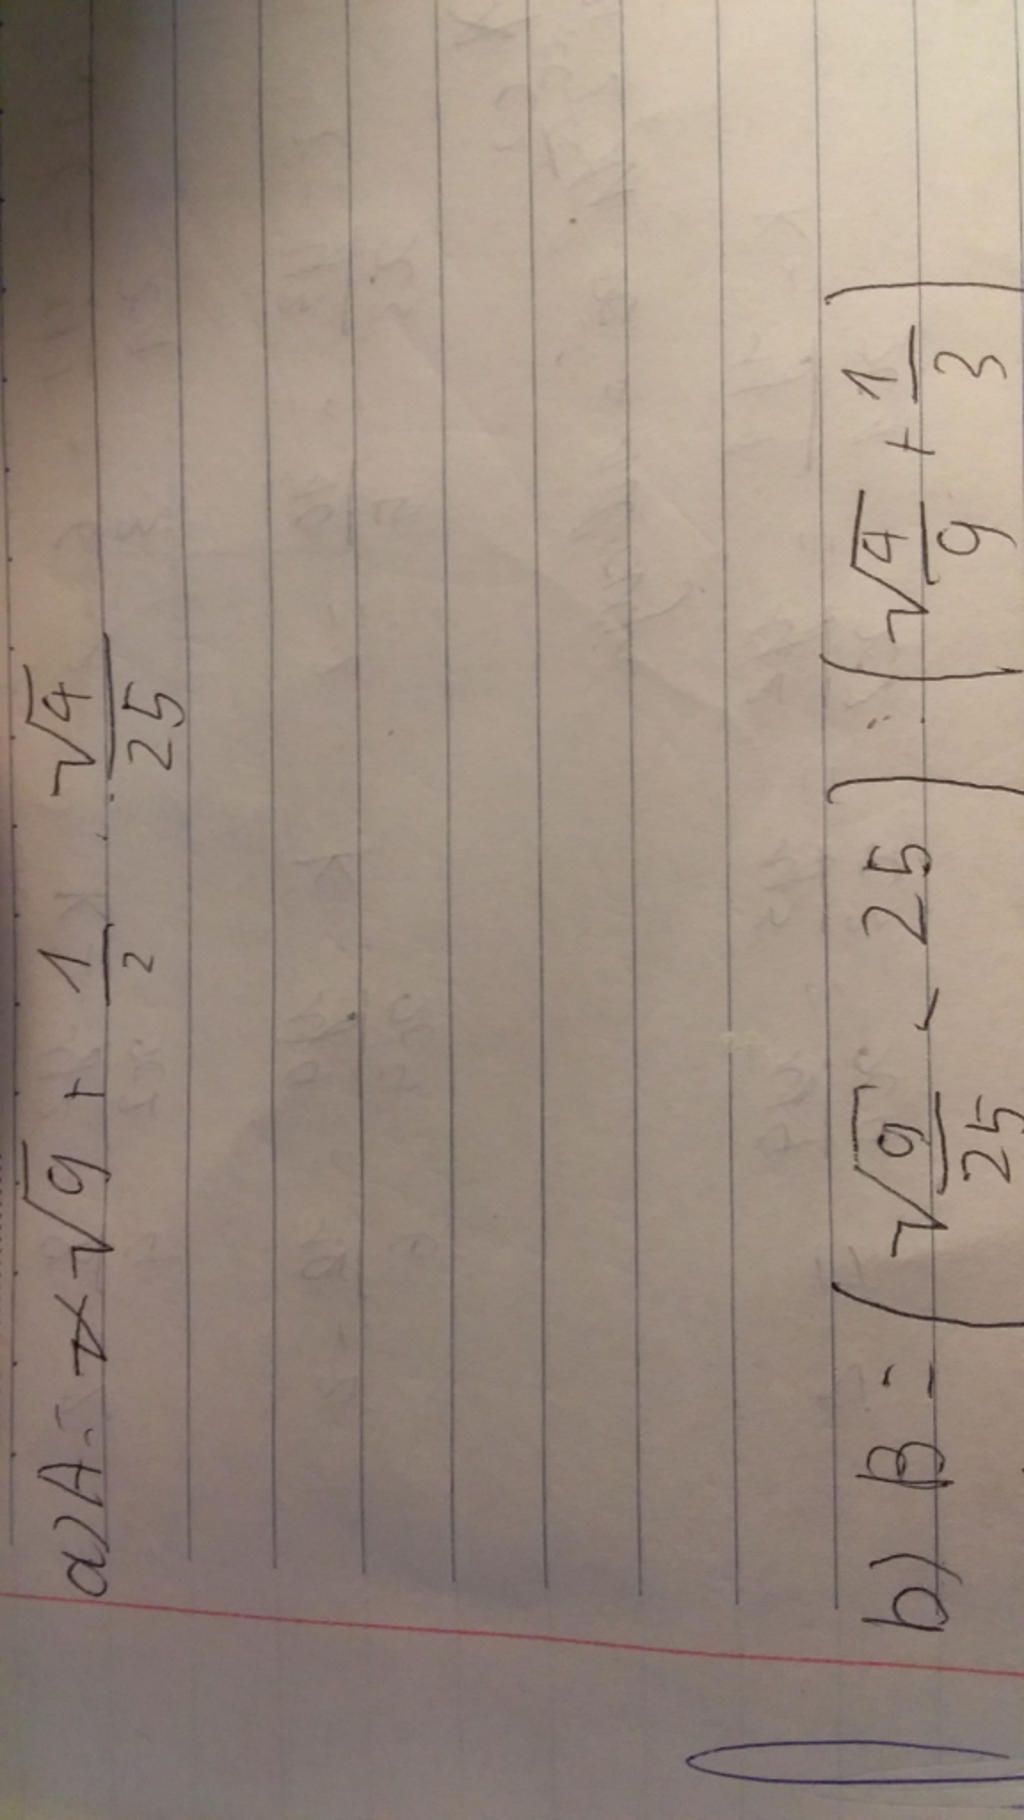 a) A = √9 + 1/2 : √4/25
b) B = (√9/25 - 25) : (√4/9 + 1/3)